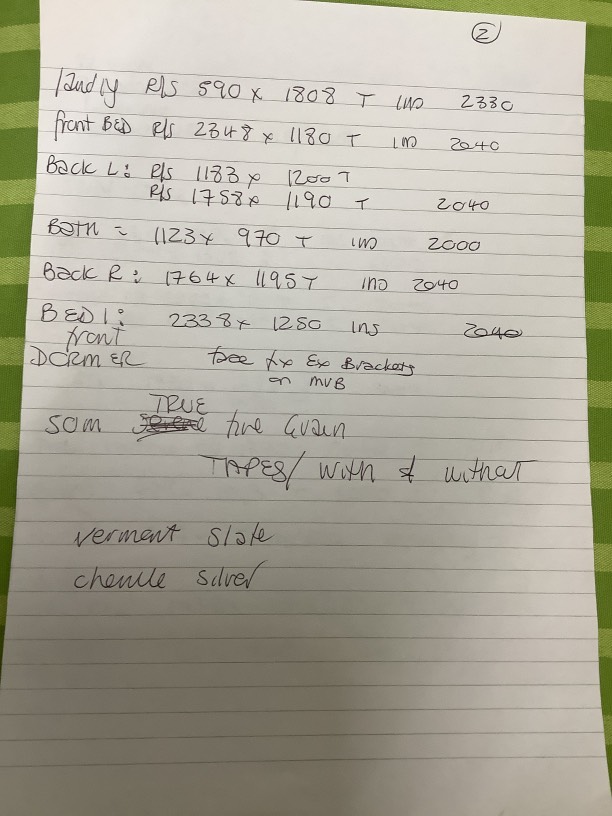 ②
landly R/S 590 x 1808 T INS 2330
front BED R/S 2348 x 1180 T IN 2040
Back L: R/S 1183 x 1200 T
R/S 1758 x 1190 T 2040
Both = 1123 x 970 T INS 2000
Back R: 1764 x 1195 T INS 2040
BED 1: 2338 x 1250 INS 2040
front
DORMER face fix Ex Brackets
on MVB
TRUE
50m fine Grain
TAPES/ with & without
verment slate
chenille silver